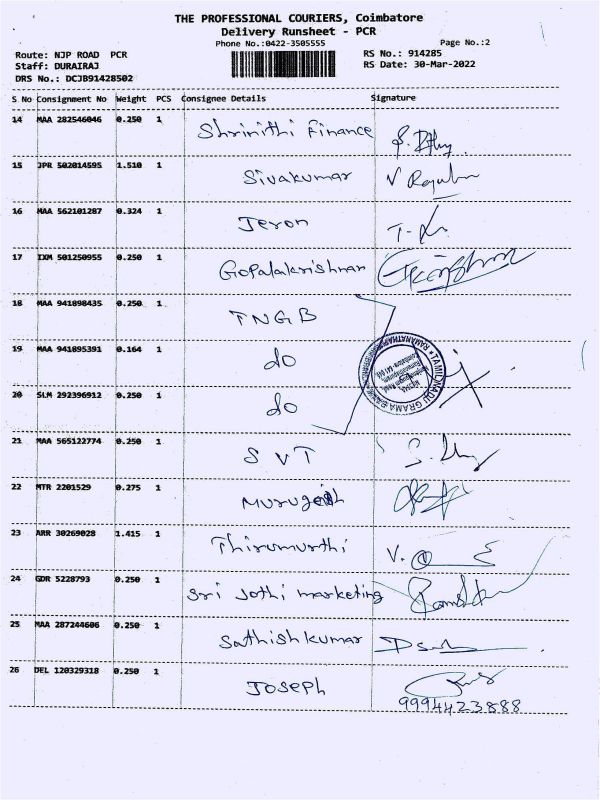 THE PROFESSIONAL COURIERS, Coimbatore
Delivery Runsheet - PCR
Phone No.:0422-3505555
Page No.:2
Route: NJP ROAD PCR
RS No.: 914285
Staff: DURAIRAJ
RS Date: 30-Mar-2022
DRS No.: DCJB91428502
S No Consignment No Weight PCS Consignee Details Signature
14 MAA 282546046 0.250 1 Shrinithi Finance
15 JPR 502014595 1.510 1 Sivakumar
16 MAA 562101287 0.324 1 Jeron
17 IXM 501250955 0.250 1 Gopalakrishnan
18 MAA 941898435 0.250 1 TNGB
19 MAA 941895391 0.164 1 do
20 SLM 292396912 0.250 1 do
TAMILNADU GRAMA BANK
21 MAA 565122774 0.250 1 SVT
22 MTR 2201529 0.275 1 Murugesh
23 ARR 30269028 1.415 1 Thirumurthi
24 GDR 5228793 0.250 1 Sri Jothi marketing
25 MAA 287244606 0.250 1 Sathishkumar
26 DEL 120329318 0.250 1 Joseph
9994423888